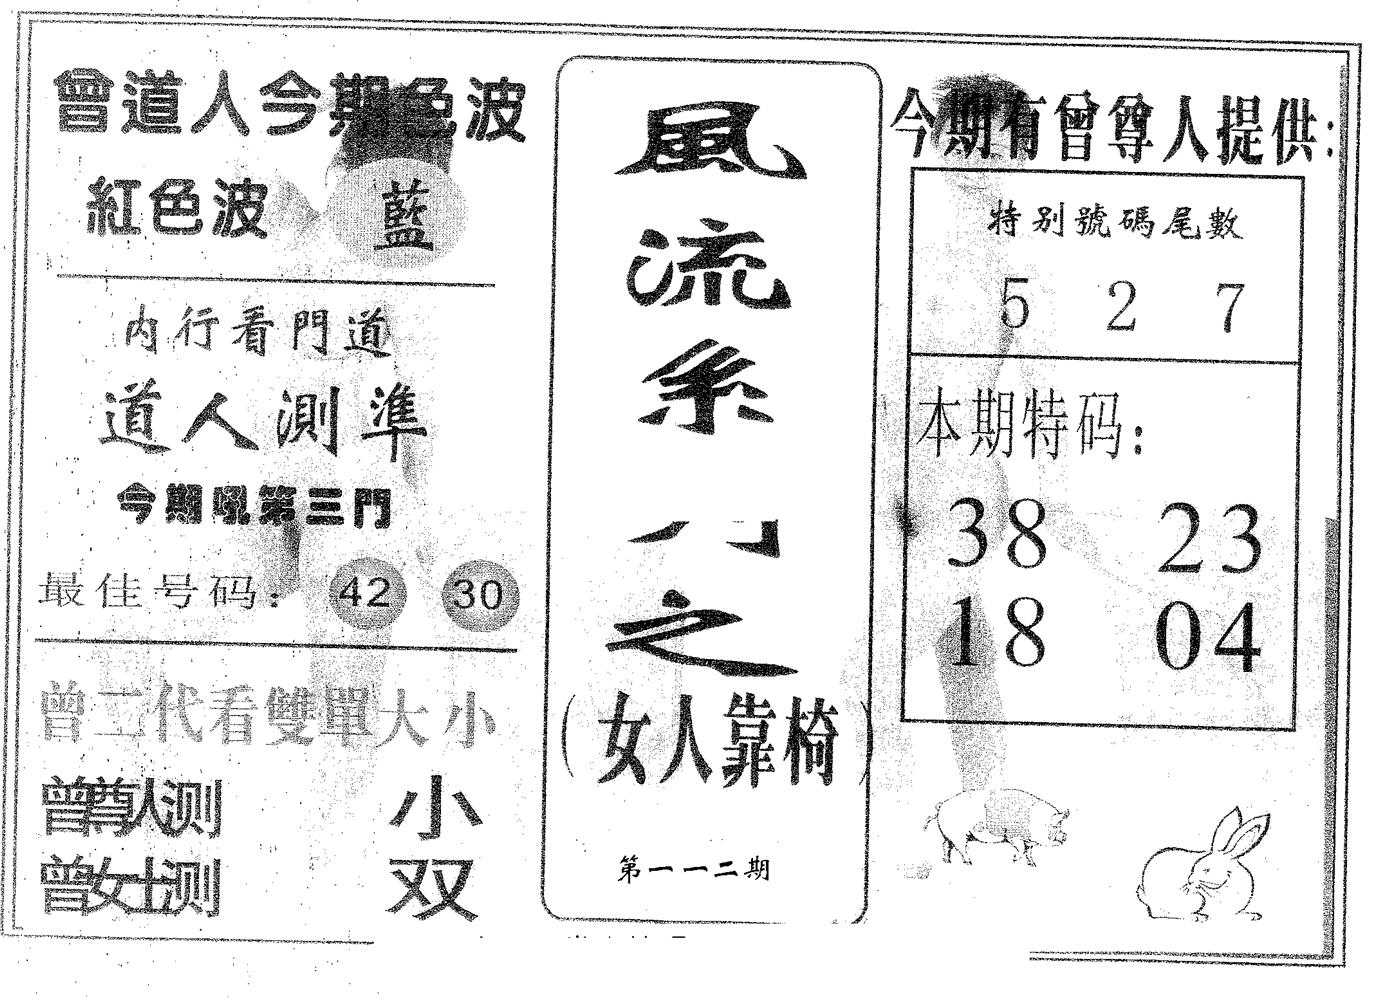 曾道人今期色波
紅色波 藍
内行看門道
道人測準
今期吼第三門
最佳号码: 42 30
曾二代看雙單大小
曾尊人测 小
曾女士测 双
風
流
系
之
(女人靠椅)
第一一二期
今期有曾尊人提供:
特别號碼尾數
5 2 7
本期特码:
38 23
18 04